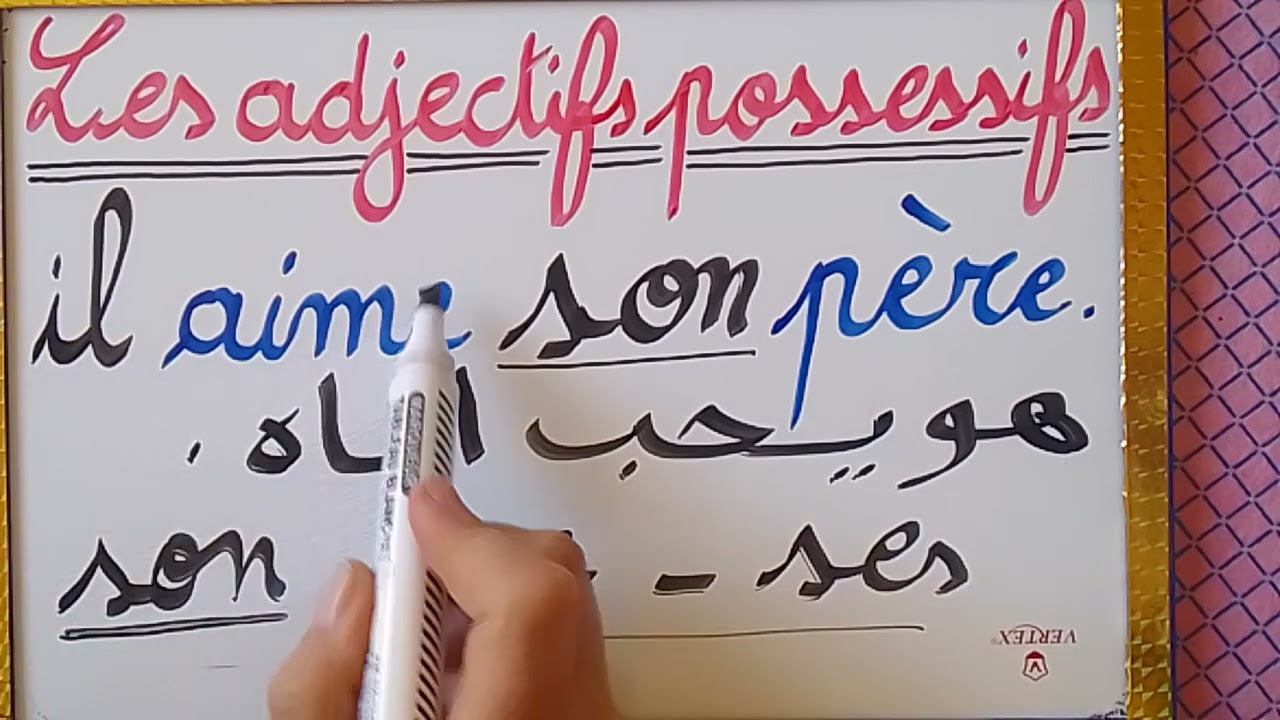 Les adjectifs possessifs
il aime son père.
هو يحب اباه .
son - ses
VERTEX